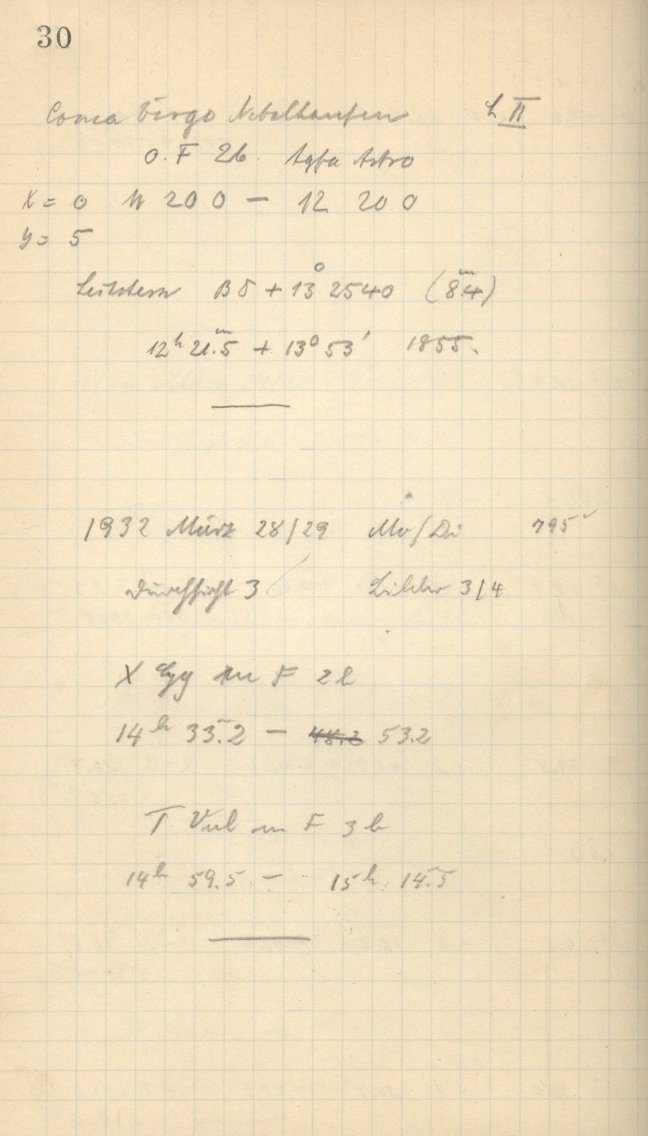 30
Coma Virgo Nebelhaufen L II
O.F 26 Agfa Astro
X = 0 11 20 0 – 12 20 0
y = 5
Leitstern BD + 13° 2540 (8.ᵐ4)
12ʰ 21.ᵐ5 + 13° 53′ 1855.
1932 März 28/29 Mo/Di 795
Durchsicht 3 Bilder 3/4
X Cyg m F 2l
14ʰ 33.2 – 48.2 53.2
T Vul m F 3b
14ʰ 59.5 – 15ʰ 14.5